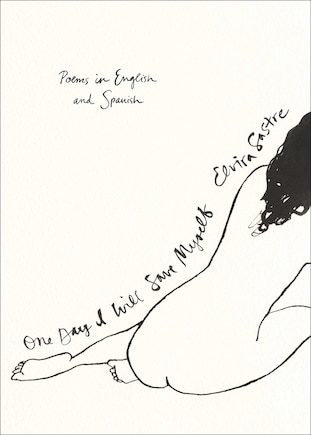 Poems in English
and Spanish
One Day I Will Save Myself
Elvira Sastre